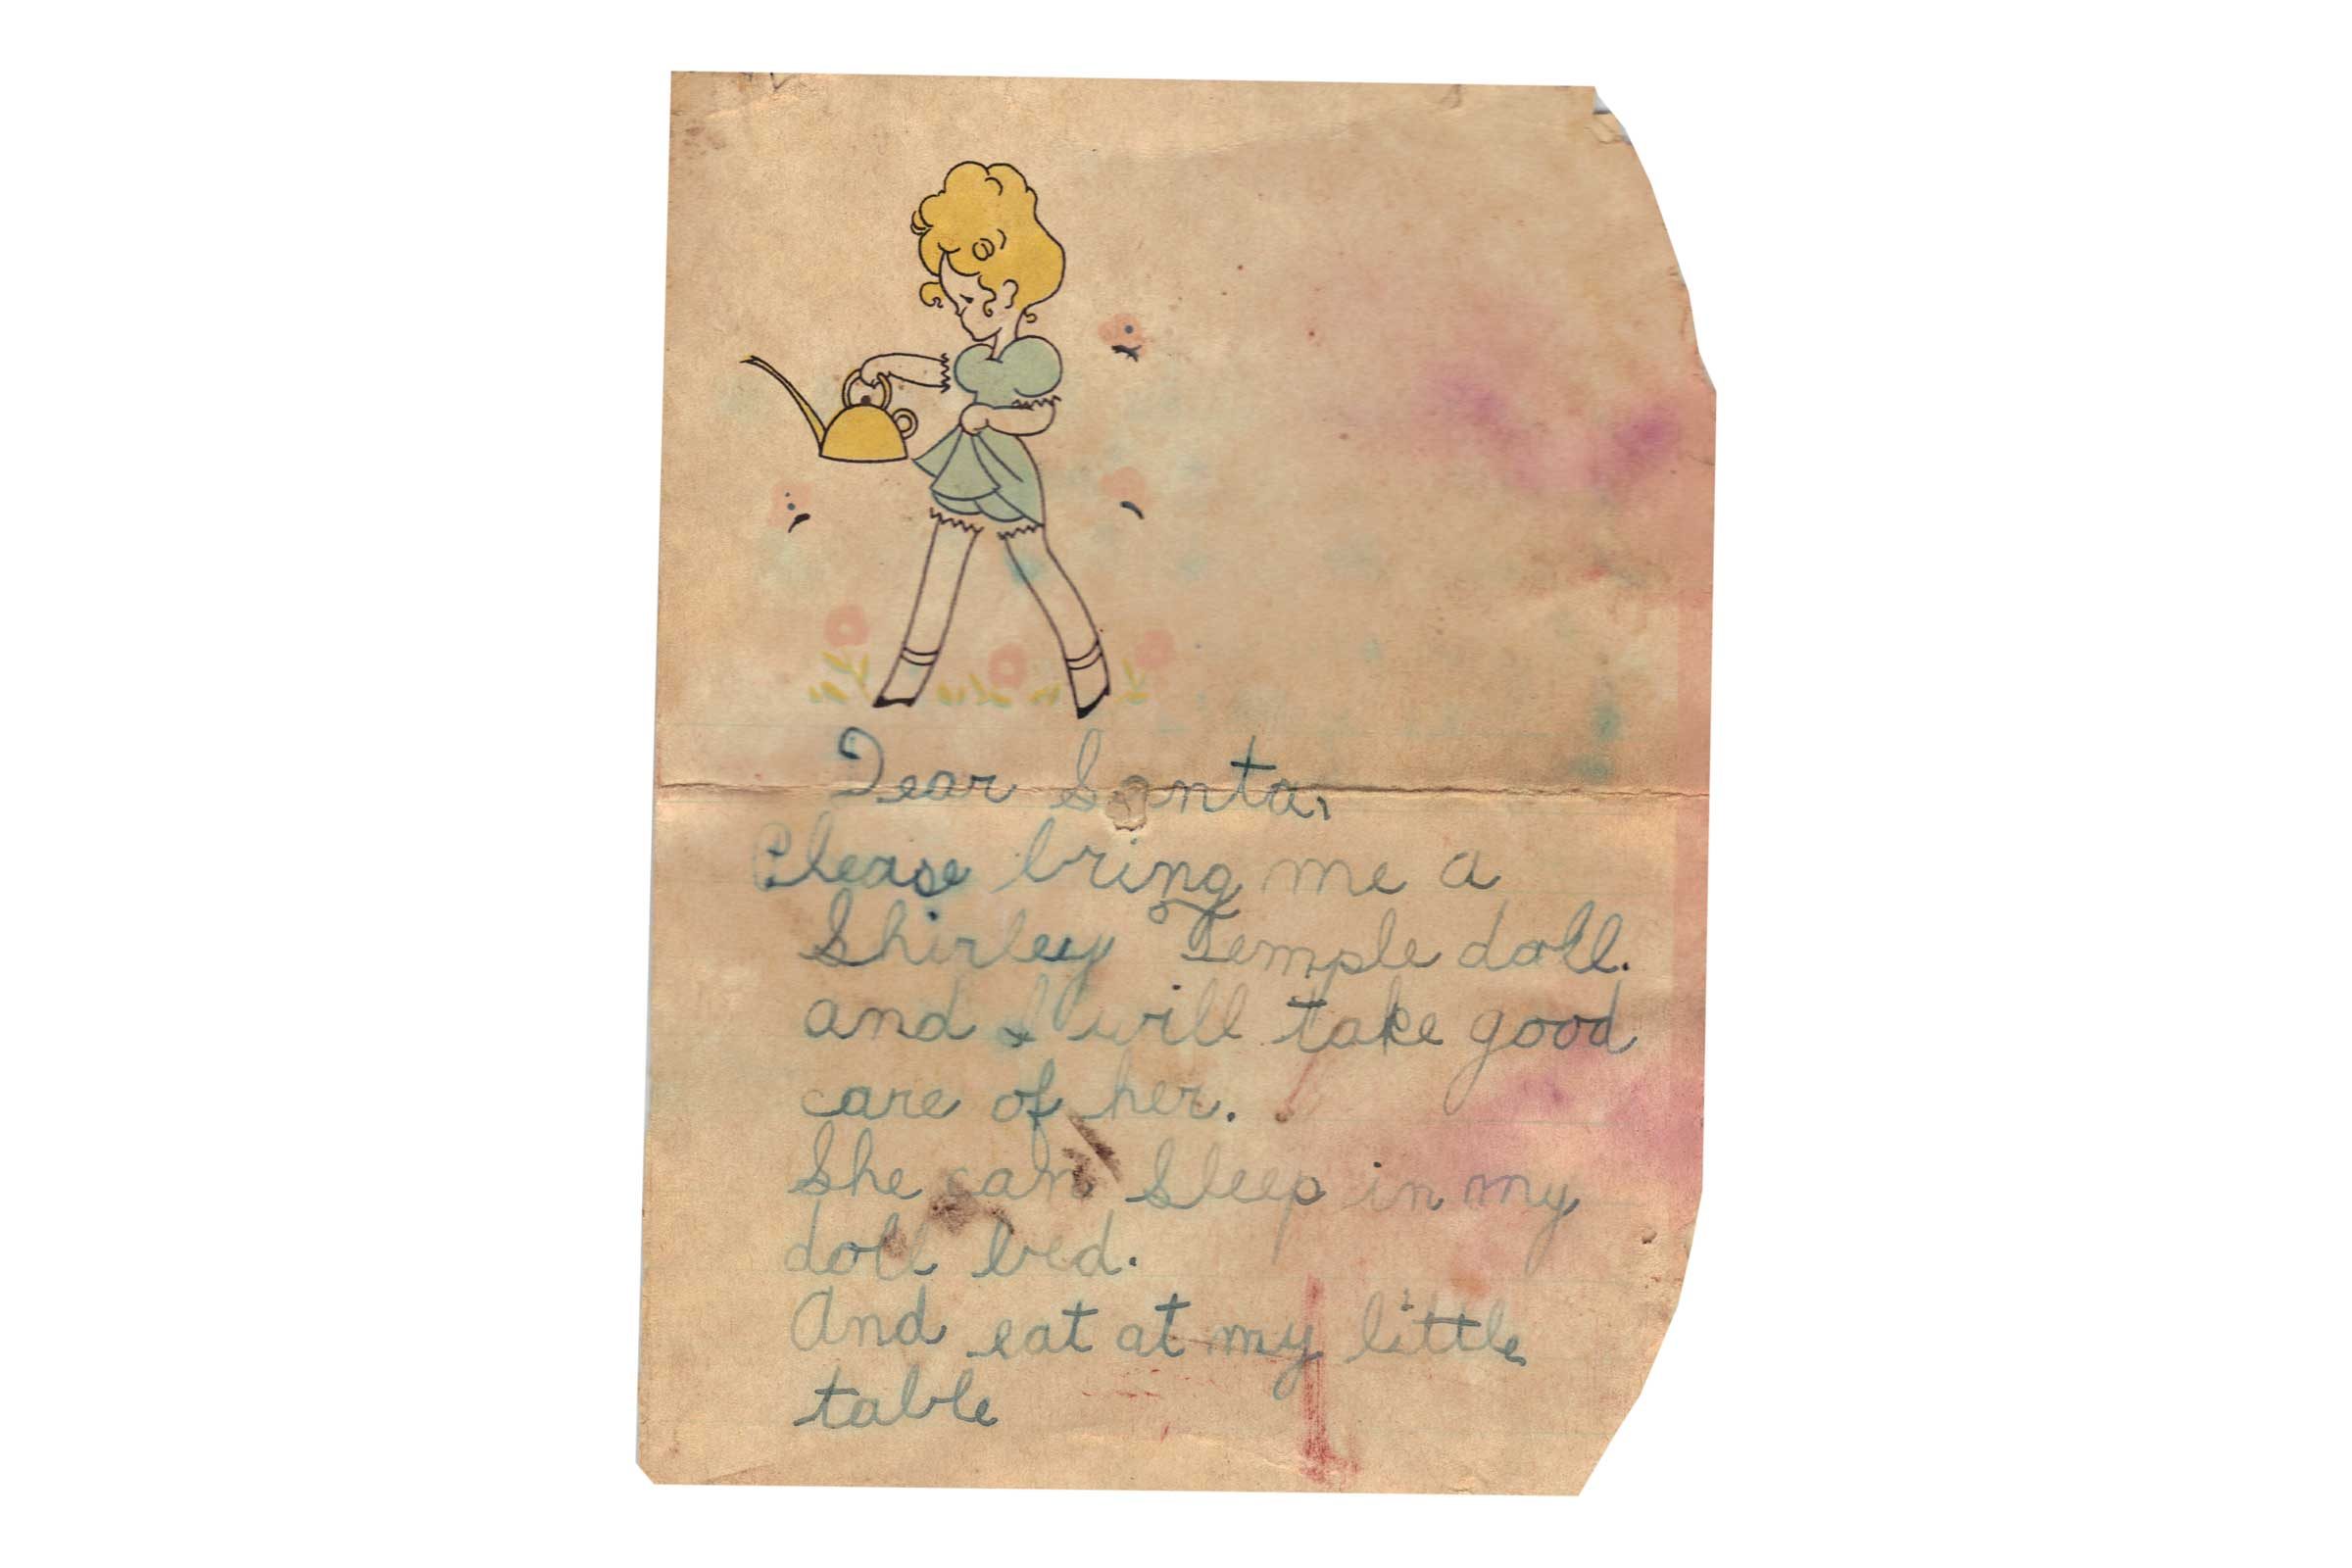 Dear Santa,
Please bring me a
Shirley Temple doll.
and I will take good
care of her.
She can Sleep in my
doll bed.
And eat at my little
table